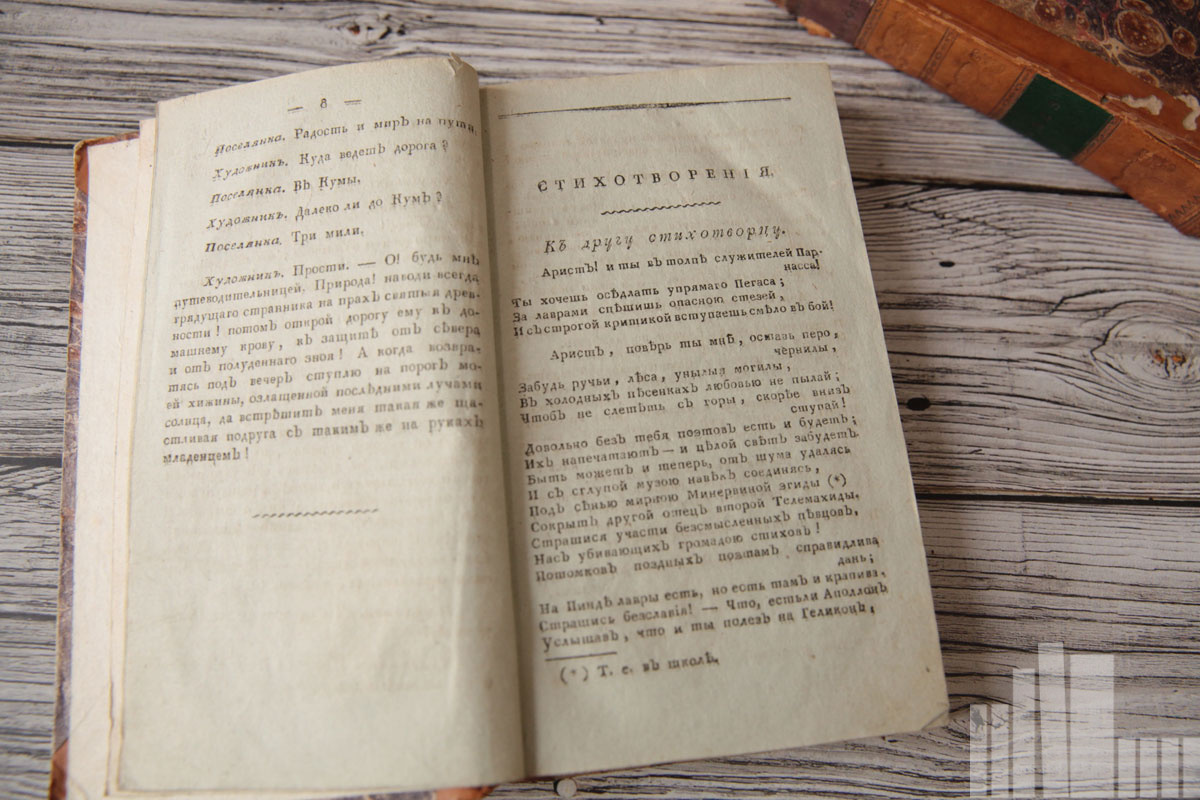 — 8 —
Поселянка. Радость и миръ на пути.
Художникъ. Куда ведетъ дорога?
Поселянка. Въ Кумы.
Художникъ. Далеко ли до Кумъ?
Поселянка. Три мили.
Художникъ. Прости. — О! будь мнѣ
путеводительницей, Природа! наводи всегда
грядущаго странника на прахъ святыя древ-
ности! потомъ открой дорогу ему къ до-
машнему крову, къ защитѣ отъ сѣвера
и отъ полуденнаго зноя! А когда возвра-
тясь подъ вечеръ ступлю на порогъ мо-
ей хижины, озлащенной послѣдними лучами
солнца, да встрѣтитъ меня такая же ща-
стливая подруга съ такимъ же на рукахъ
младенцемъ!
СТИХОТВОРЕНІЯ.
Къ другу стихотворцу.
Аристъ! и ты въ толпѣ служителей Пар-
насса!
Ты хочешь осѣдлать упрямаго Пегаса;
За лаврами спѣшишь опасною стезей,
И съ строгой критикой вступаешь смѣло въ бой!
Аристъ, повѣрь ты мнѣ, оставь перо,
чернилы,
Забудь ручьи, лѣса, унылыя могилы,
Въ холодныхъ пѣсенкахъ любовью не пылай;
Чтобъ не слетѣть съ горы, скорѣе внизъ
ступай!
Довольно безъ тебя поэтовъ есть и будетъ;
Ихъ напечатаютъ — и цѣлой свѣтъ забудетъ.
Быть можетъ и теперь, отъ шума удалясь
И съ глупой музою навѣкъ соединясь,
Подъ сѣнью мирною Минервиной эгиды (*)
Сокрытъ другой отецъ второй Телемахиды.
Страшися участи безсмысленныхъ пѣвцовъ,
Насъ убивающихъ громадою стиховъ!
Потомковъ поздныхъ поэтамъ справидлива
дань;
На Пиндѣ лавры есть, но есть тамъ и крапива.
Страшись безславія! — Что, естьли Аполлонъ
Услышавъ, что и ты полезъ на Геликонъ,
(*) Т. е. въ школѣ.